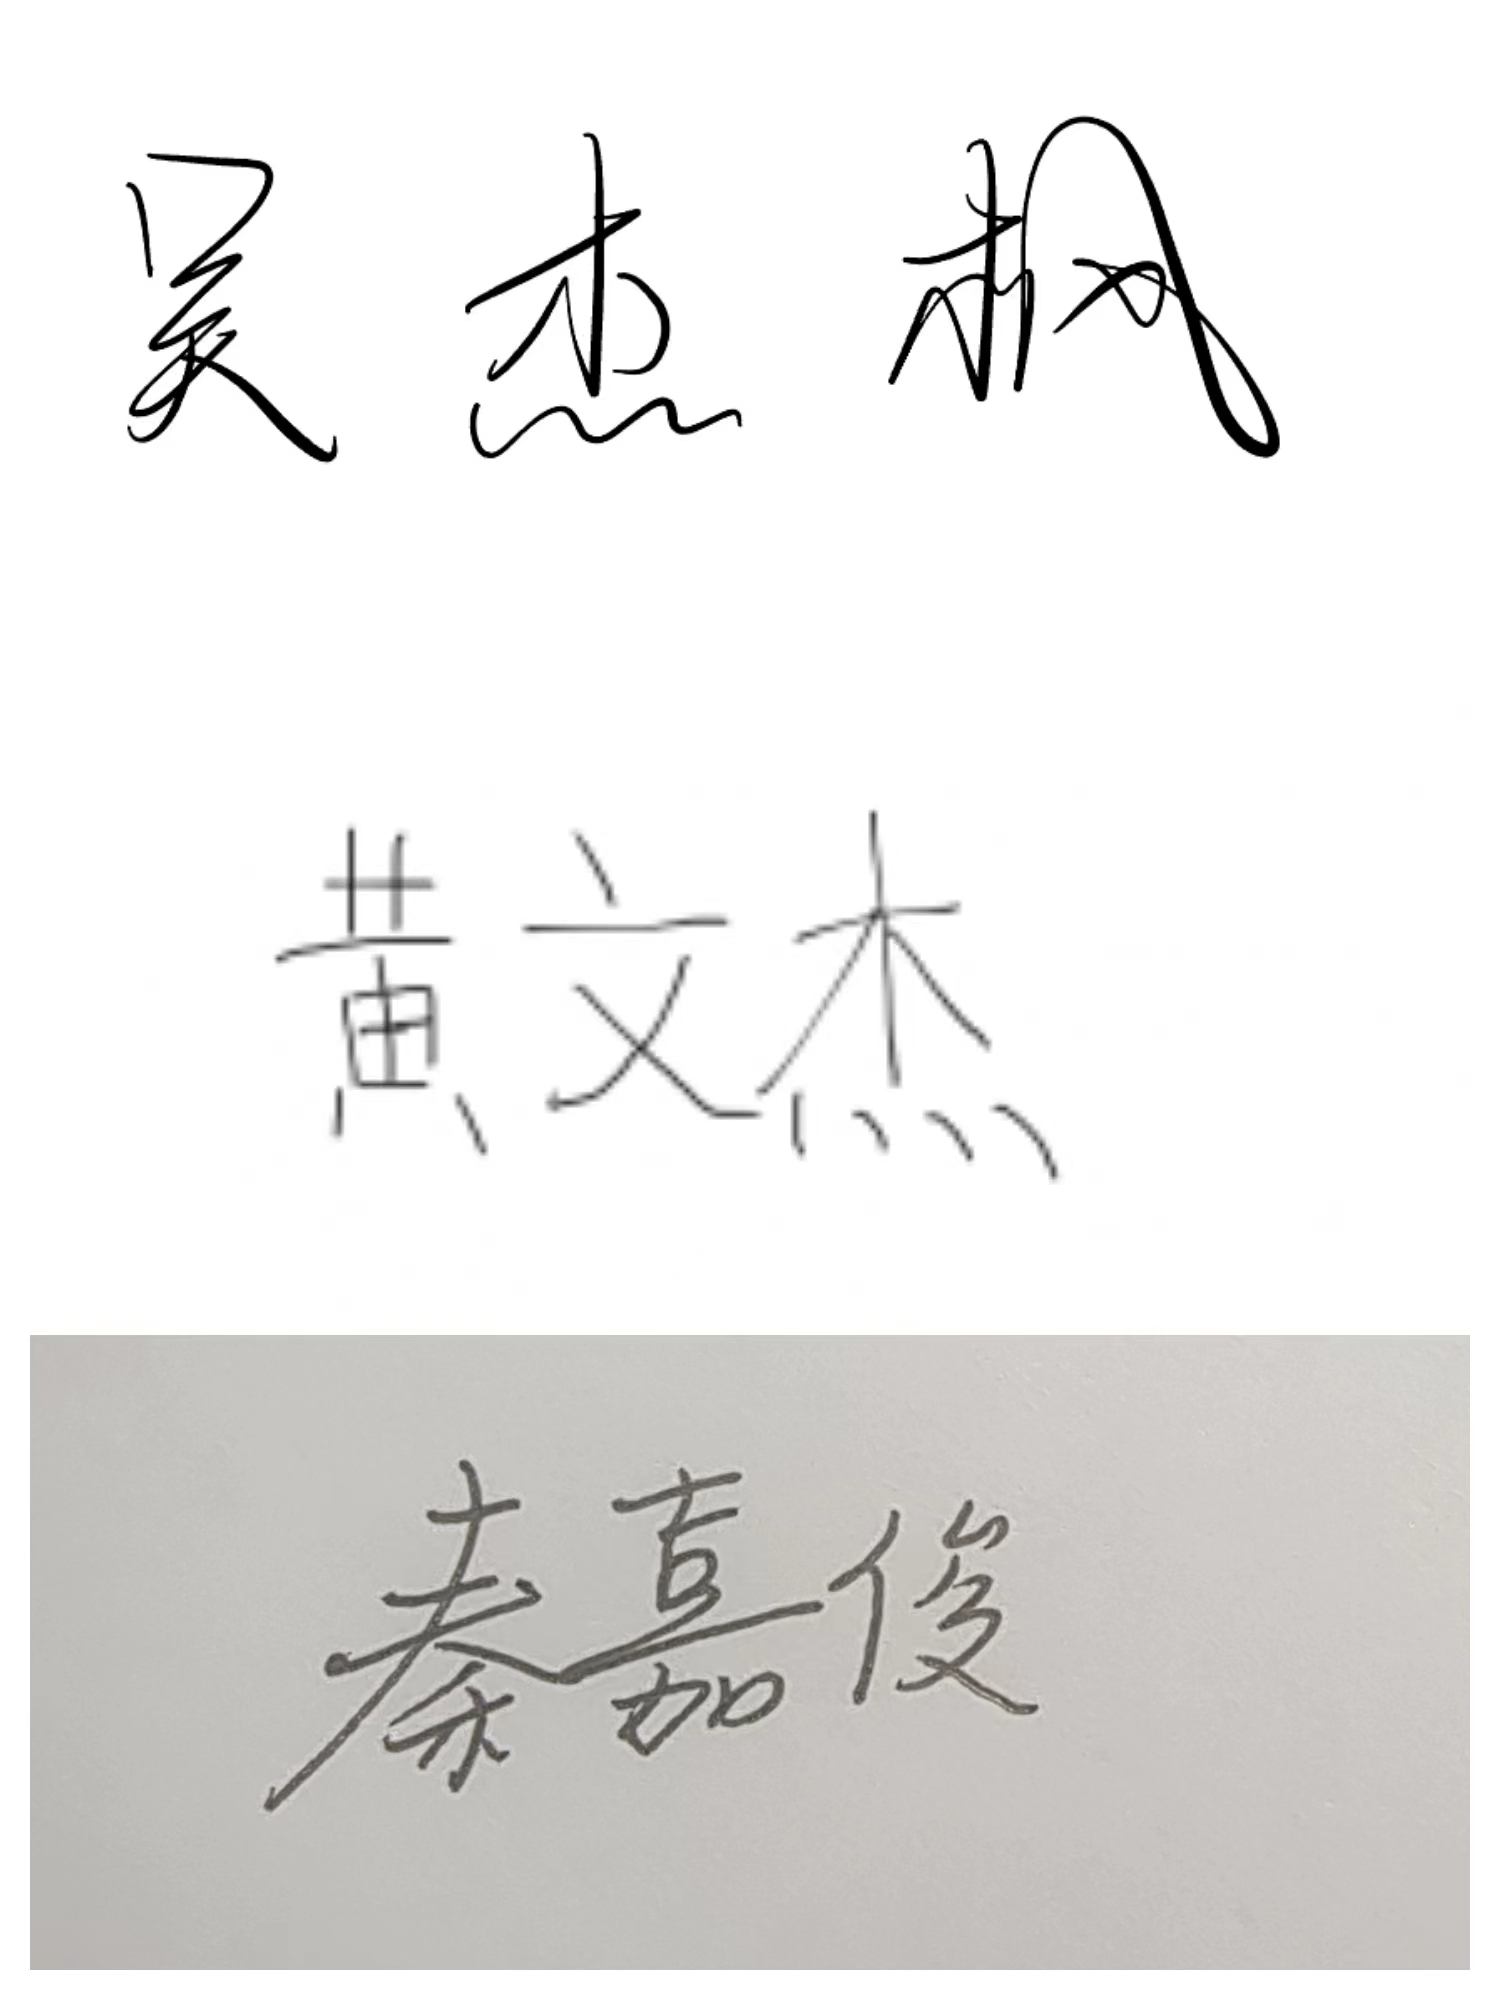 吴杰枫
黄文杰
秦嘉俊